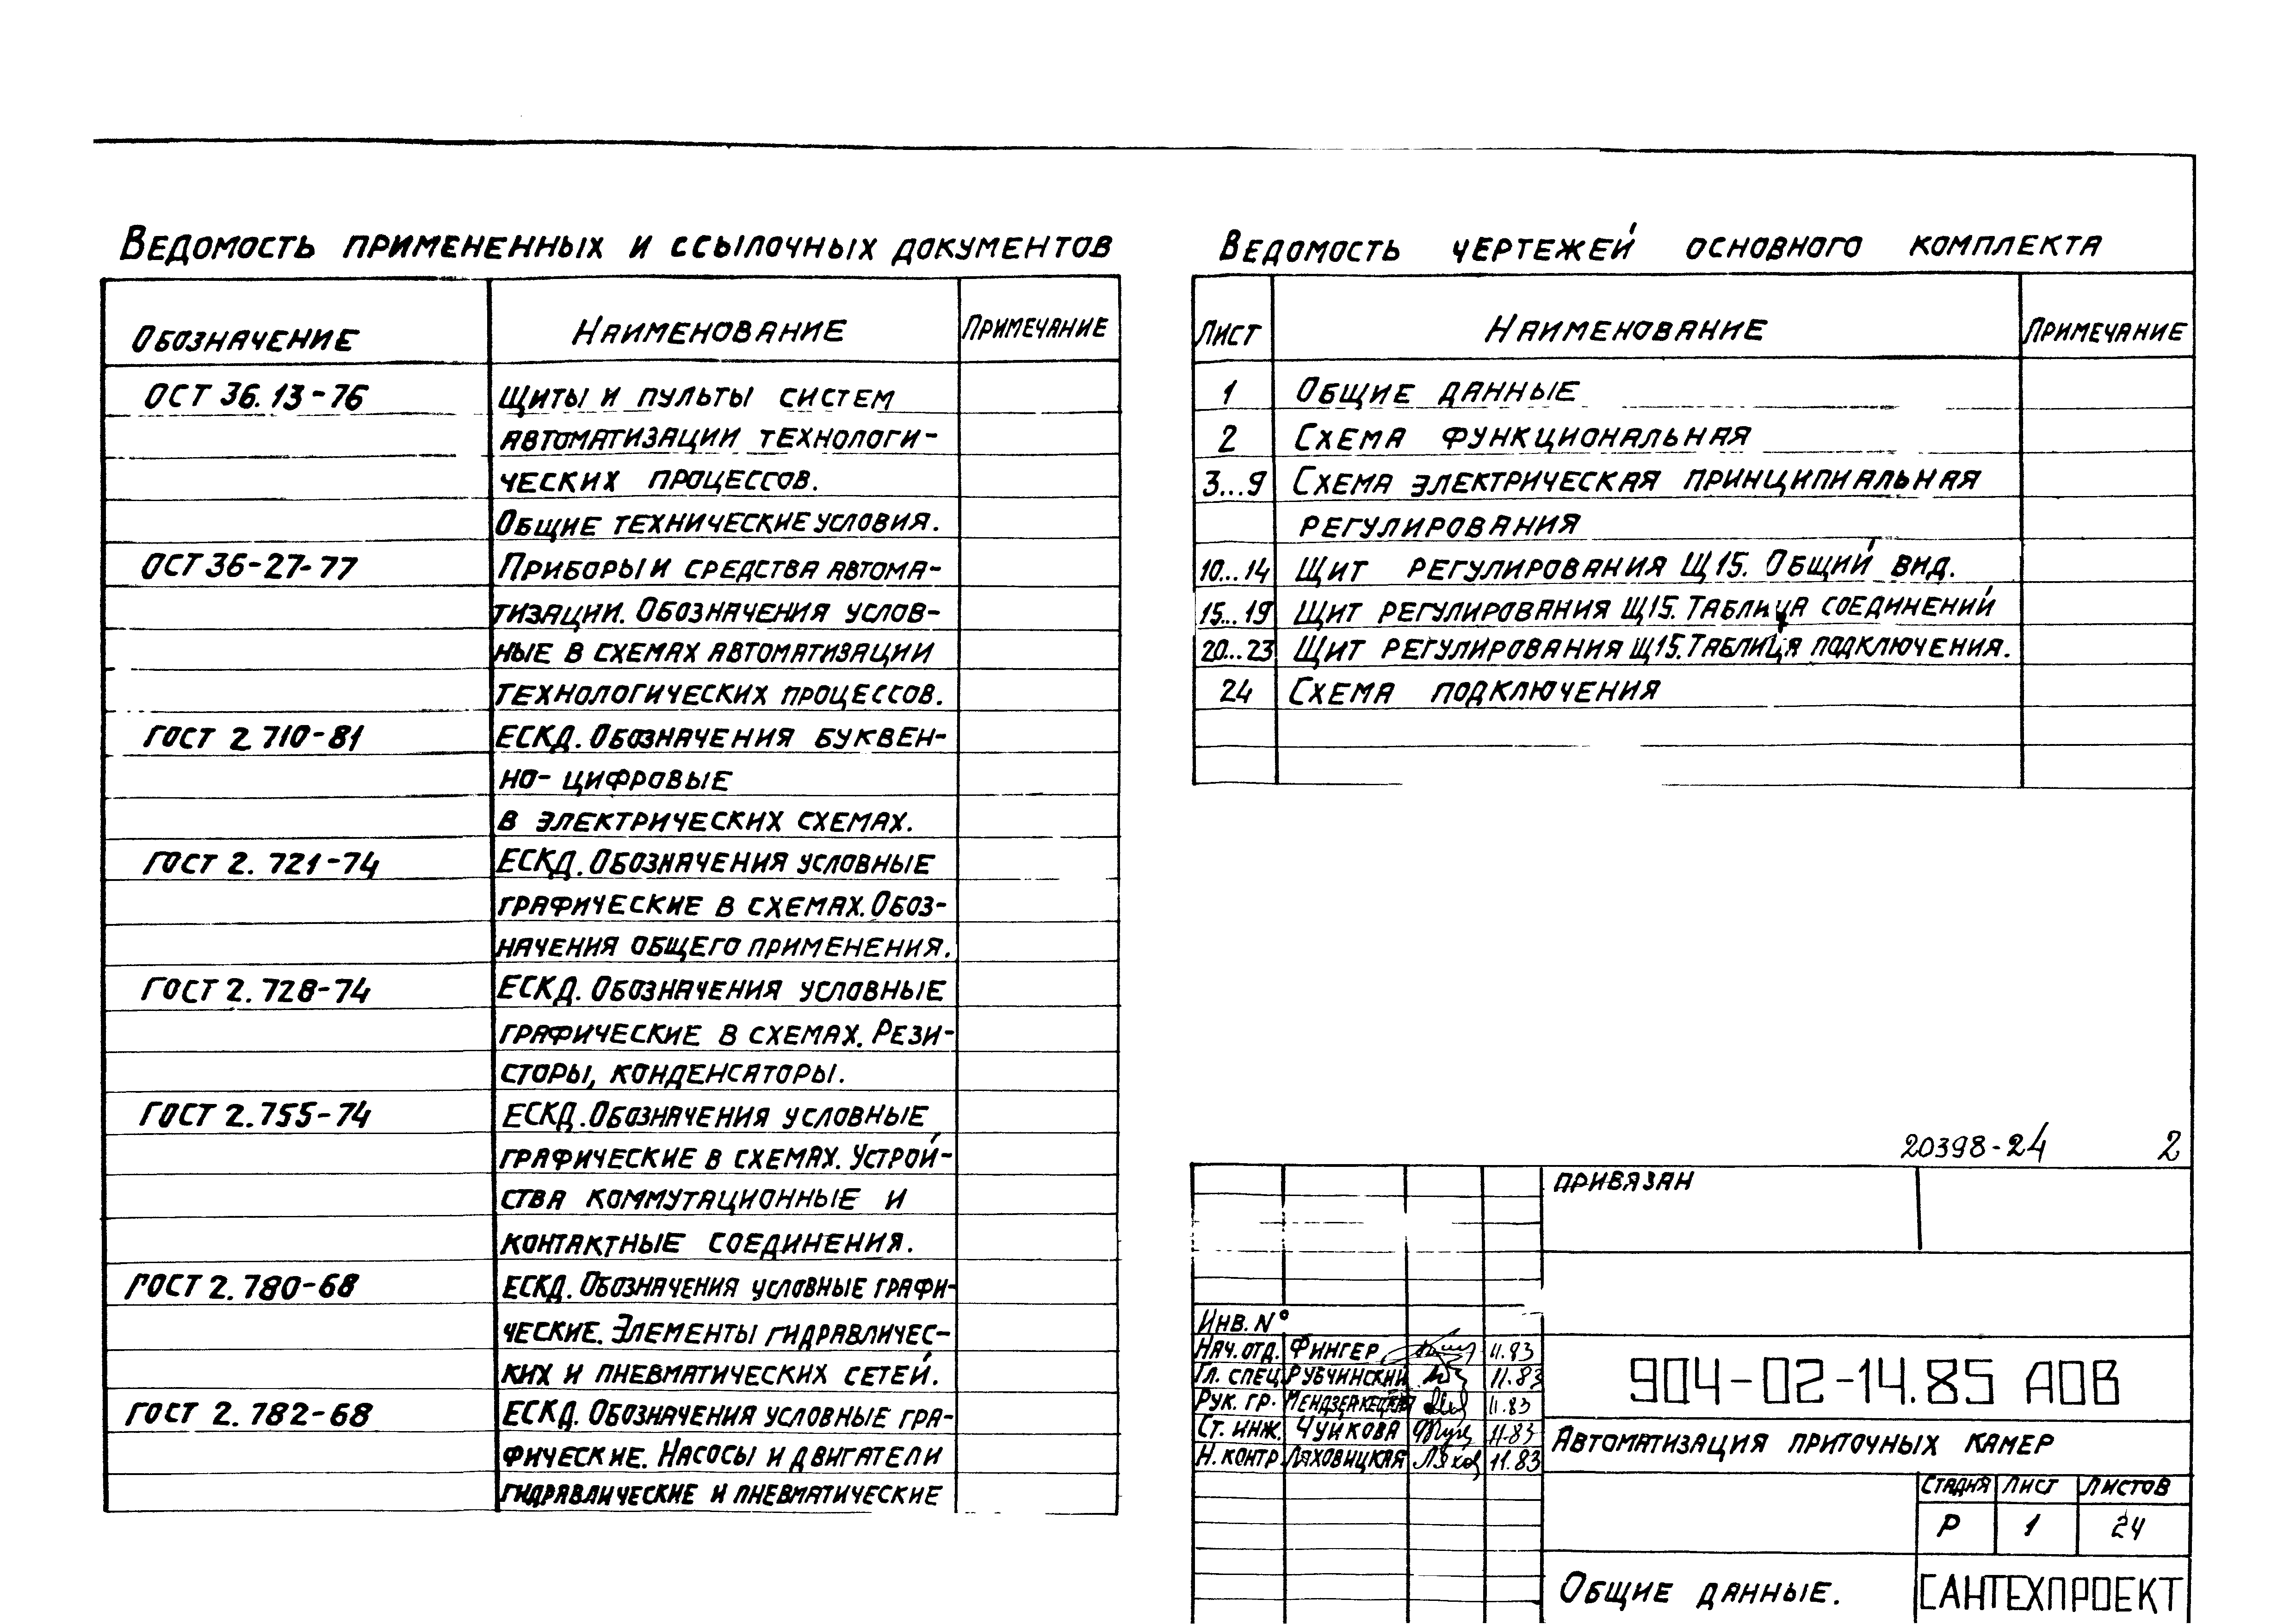 Ведомость примененных и ссылочных документов
Обозначение Наименование Примечание
ОСТ 36.13-76 Щиты и пульты систем
автоматизации технологи-
ческих процессов.
Общие технические условия.
ОСТ 36-27-77 Приборы и средства автома-
тизации. Обозначения услов-
ные в схемах автоматизации
технологических процессов.
ГОСТ 2 710-81 ЕСКД. Обозначения буквен-
но-цифровые
в электрических схемах.
ГОСТ 2. 721-74 ЕСКД. Обозначения условные
графические в схемах. Обоз-
начения общего применения.
ГОСТ 2. 728-74 ЕСКД. Обозначения условные
графические в схемах. Рези-
сторы, конденсаторы.
ГОСТ 2. 755-74 ЕСКД. Обозначения условные
графические в схемах. Устрой-
ства коммутационные и
контактные соединения.
ГОСТ 2. 780-68 ЕСКД. Обозначения условные графи-
ческие. Элементы гидравличес-
ких и пневматических сетей.
ГОСТ 2. 782-68 ЕСКД. Обозначения условные гра-
фические. Насосы и двигатели
гидравлические и пневматические
Ведомость чертежей основного комплекта
Лист Наименование Примечание
1 Общие данные
2 Схема функциональная
3...9 Схема электрическая принципиальная
регулирования
10...14 Щит регулирования Щ15. Общий вид.
15...19 Щит регулирования Щ15. Таблица соединений
20...23 Щит регулирования Щ15. Таблица подключения.
24 Схема подключения
20398-24 2
Привязан
Инв. N°
Нач. отд. Фингер 11.83
Гл. спец. Рубчинский 11.83
Рук. гр. 11.83
Ст. инж. Чуйкова 11.83
Н. контр Ляховицкая 11.83
904-02-14.85 АОВ
Автоматизация приточных камер
Стадия Лист Листов
Р 1 24
Общие данные.
САНТЕХПРОЕКТ